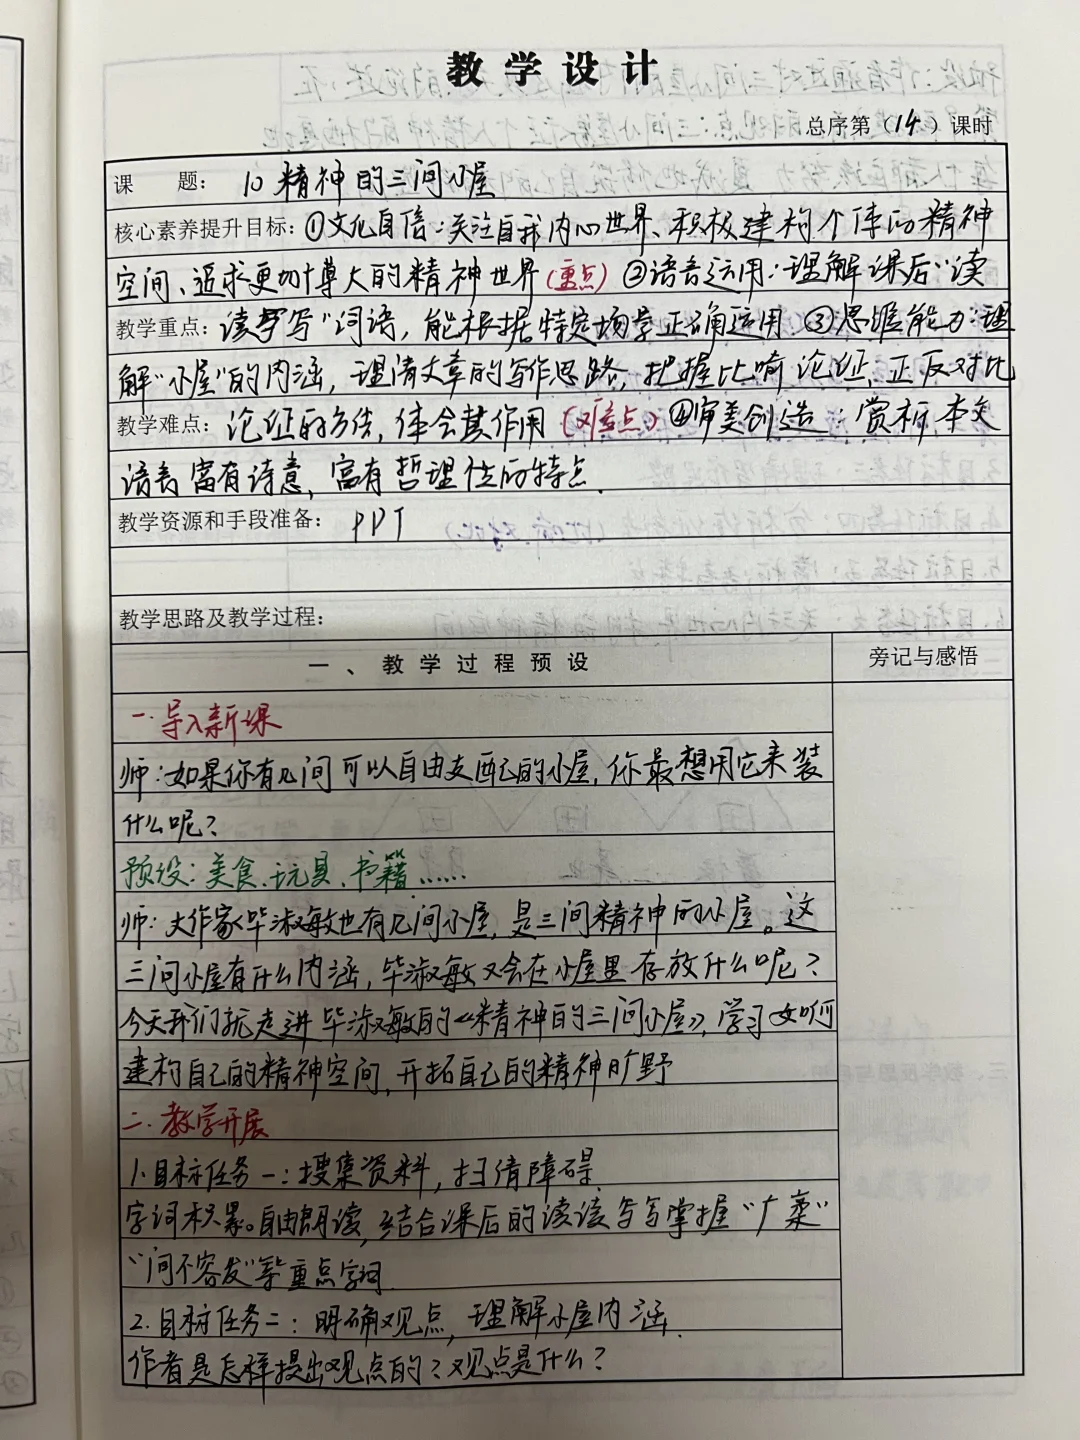 教学设计
总序第（14）课时
课 题： 10 精神的三间小屋
核心素养提升目标：①文化自信：关注自我内心世界、积极建构个体的精神
空间、追求更加博大的精神世界（重点）②语言运用：理解课后“读
教学重点：读写写”词语，能根据特定场景正确运用 ③思维能力：理
解“小屋”的内涵，理清文章的写作思路，把握比喻论证、正反对比
教学难点：论证的方法，体会其作用（难点）④审美创造：赏析本文
语言富有诗意，富有哲理性的特点.
教学资源和手段准备： PPT
教学思路及教学过程：
一、教学过程预设
旁记与感悟
一.导入新课
师：如果你有几间可以自由支配己的小屋，你最想用它来装
什么呢？
预设：美食、玩具、书籍……
师：大作家毕淑敏也有几间小屋，是三间精神的小屋。这
三间小屋有什么内涵，毕淑敏又会在小屋里存放什么呢？
今天我们就走进毕淑敏的《精神的三间小屋》，学习如何
建构自己的精神空间，开拓自己的精神旷野
二.教学开展
1.目标任务一：搜集资料，扫清障碍.
字词积累。自由朗读，结合课后的读读写写掌握“广袤”
“间不容发”等重点字词
2.目标任务二：明确观点，理解小屋内涵.
作者是怎样提出观点的？观点是什么？